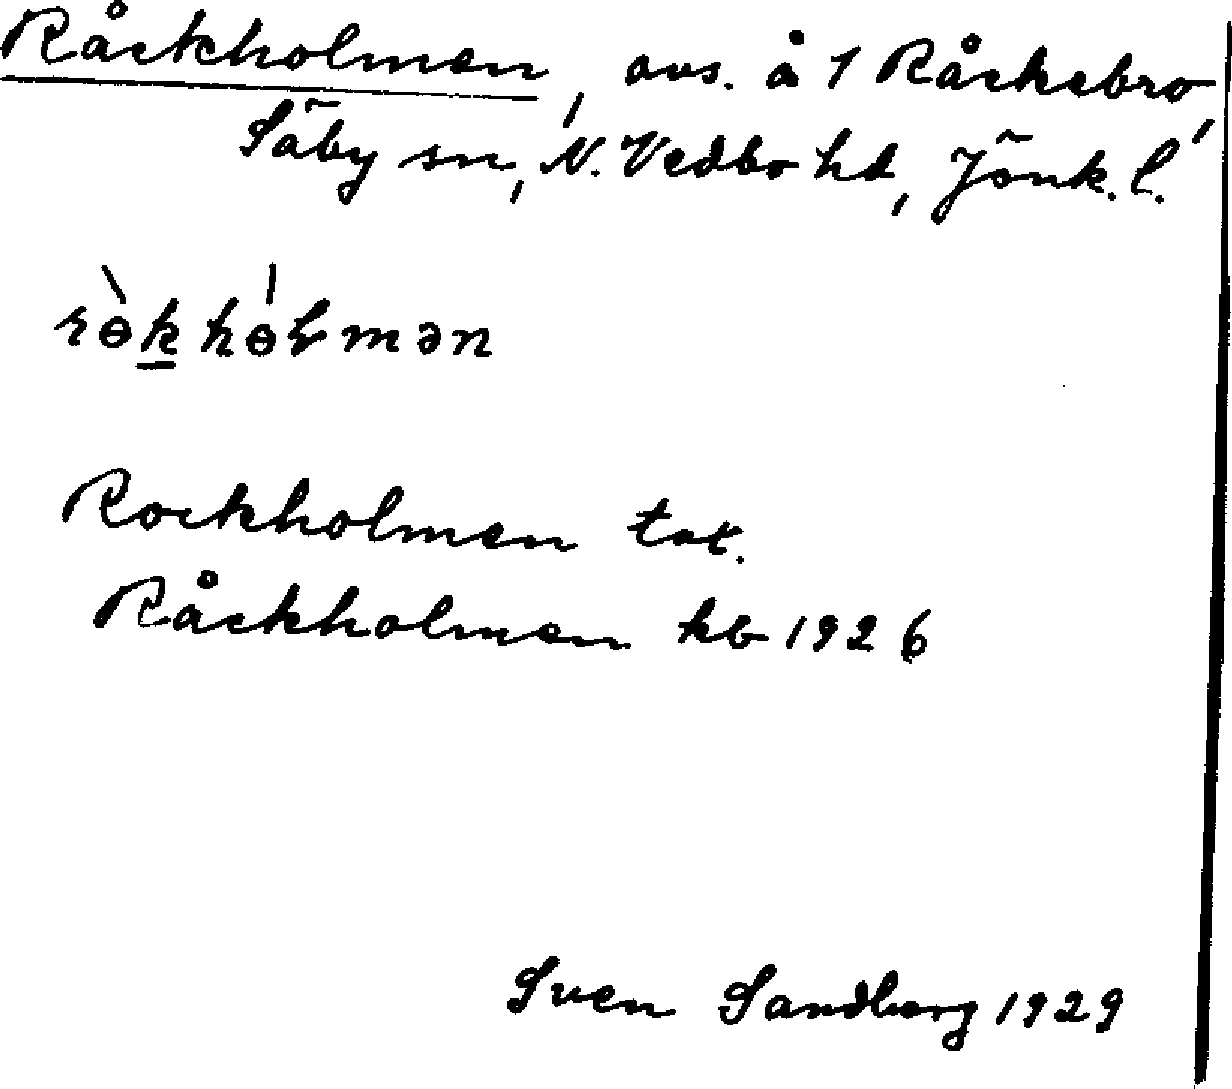 Råckholmen, avs. å 1 Råckebro,
Säby sn, N. Vedbo hd, Jönk. l.
rɵ̀k hɵ́lmən
Rockholmen tax.
Råckholmen kb 1926
Sven Sandberg 1929